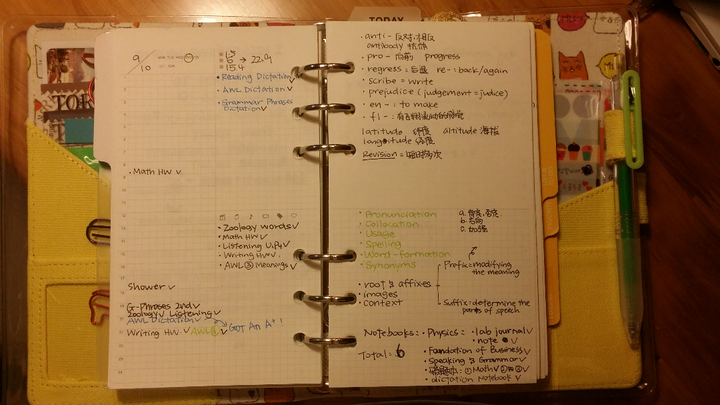 TODAY
9/10
1.5
6 → 22.9
15.4
• Reading Dictation✓
• AWL Dictation✓
• Grammar Phrases
Dictation✓
• Math HW ✓
• Zoology words✓
• Math HW✓
• Listening U1,P4✓
• Writing HW✓
• AWL③ Meanings✓
Shower✓
G-Phrases 2nd✓
Zoology✓ Listening✓
AWL Dictation✓
Writing HW✓ AWL③✓ GOT An A+!
• anti- 反對,相反
antibody 抗體
• pro- 向前 progress
• regress:后退 re-: back/again
• scribe = write
• prejudice (judgement=judice)
• en- : to make
• fl- :
latitude 緯度 altitude 海拔
longitude 經度
Revision =
• Pronunciation
• Collocation
• Usage
• Spelling
• Word-formation
• Synonyms
a.
b. 名詞
c.
• root & affixes
• images
• context
Prefix=modifying
the meaning
Suffix:determine the
parts of speech
Notebooks: • Physics: • lab journal✓
• note ✓
• Foundation of Business✓
• Speaking & Grammar✓
①Math✓
• dictation Notebook✓
Total = 6